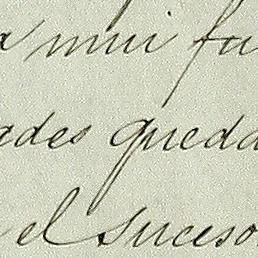 a mui fa
ades queda
el suceso